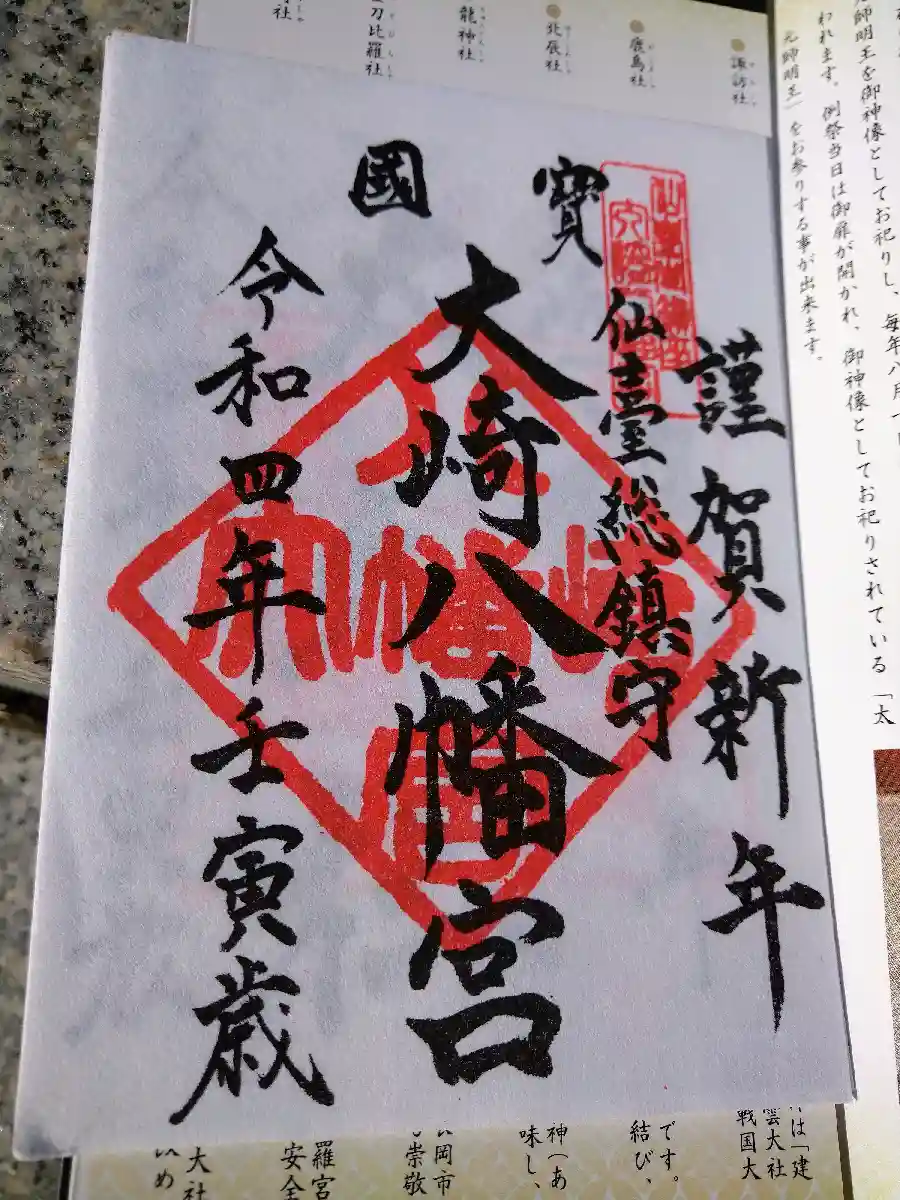 寳國
謹賀新年
仙臺総鎮守
大崎八幡宮
令和四年壬寅歳
諏訪社
鹿島社
北辰社
龍神社
刀比羅社
社
元師明王を御神像としてお祀りし、毎年八月一日
われます。例祭当日は御扉が開かれ、御神像としてお祀りされている「太
元師明王」をお参りする事が出来ます。
は「建
雲大社
戦国大
です。
結び、
神（あ
味し、
岡市
崇敬
羅宮
安全
大社
め